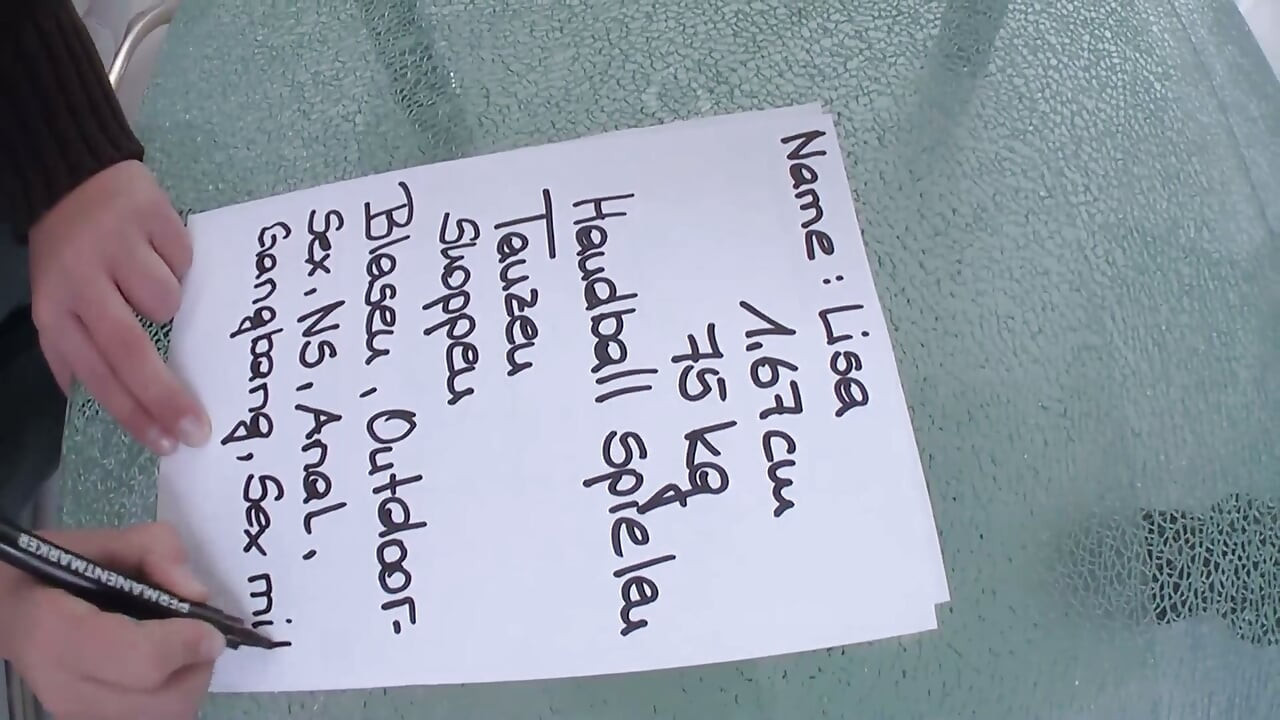 Name: Lisa
1.67cm
75 kg
Handball spielen
Tanzen
Shoppen
Blasen, Outdoor-
Sex, NS, Anal,
Gangbang, Sex mi
PERMANENTMARKER
PERMAN